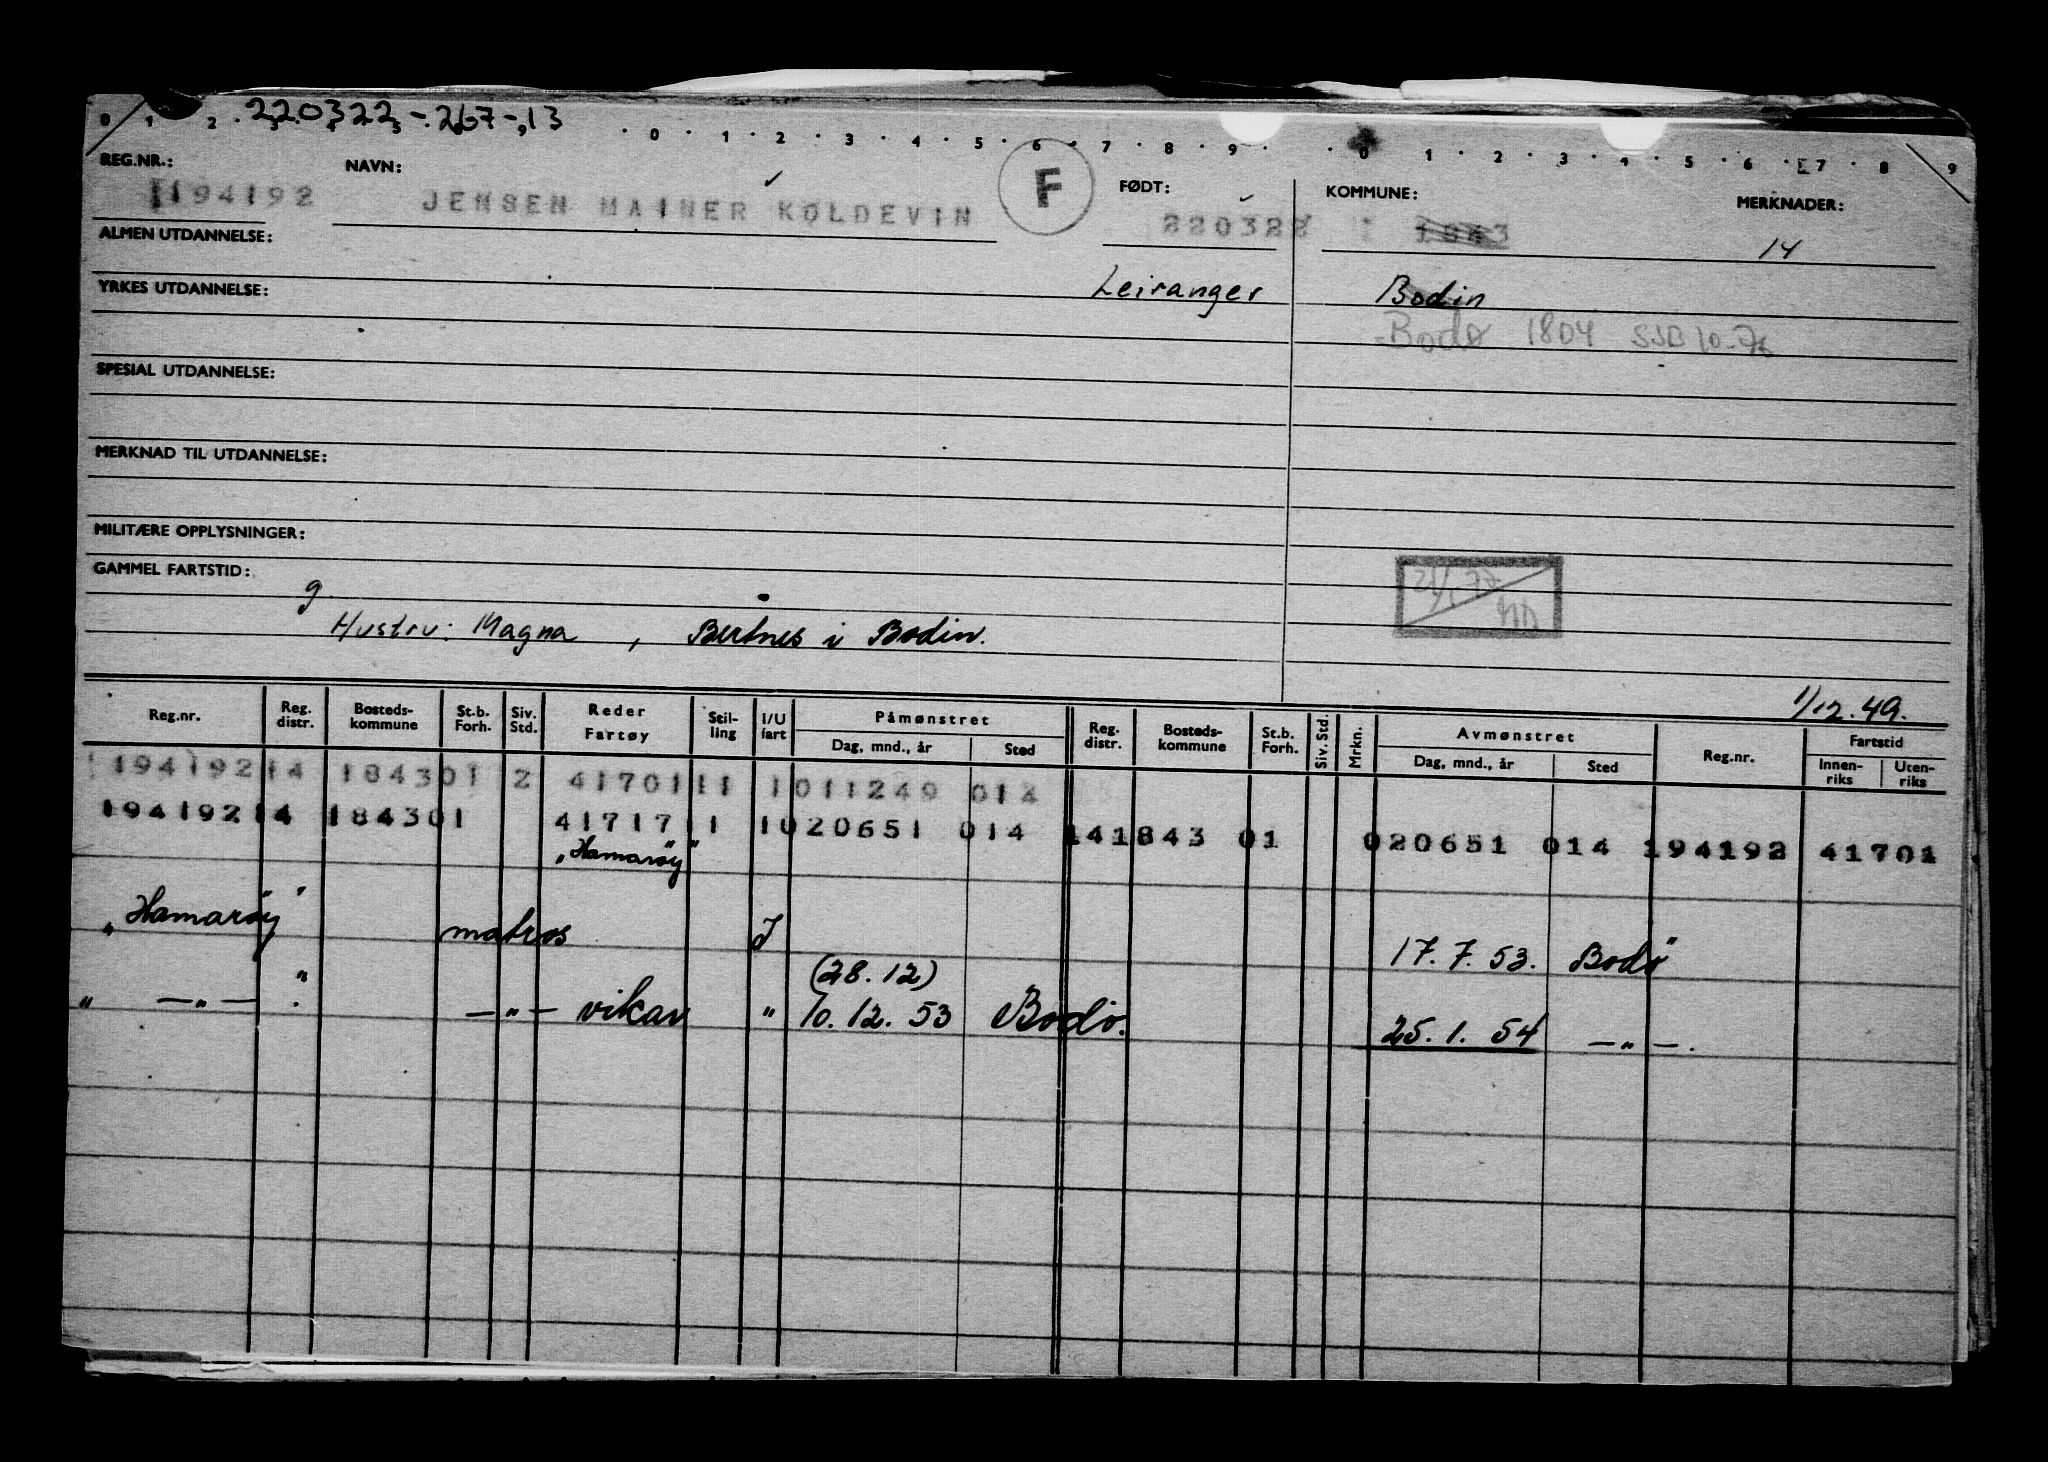 220322-.267-,13
0 1 2 3 4 5 0 1 2 3 4 5 6 7 8 9 0 1 2 3 4 5 6 7 8 9
REG.NR.: NAVN: FØDT: KOMMUNE: MERKNADER:
194192 JENSEN MAINER KOLDEVIN F 220322 1843 14
ALMEN UTDANNELSE:
YRKES UTDANNELSE: Leiranger Bodin
Bodø 1804 SJØ 10-76
SPESIAL UTDANNELSE:
MERKNAD TIL UTDANNELSE:
MILITÆRE OPPLYSNINGER:
GAMMEL FARTSTID:
g.
Hustru: Magna , Bertnes i Bodin.
1/12.49.
Reg.nr. Reg. distr. Bosteds-kommune St.b. Forh. Siv. Std. Reder Fartøy Stil-ling I/U fart Påmønstret Reg. distr. Bosteds-kommune St.b. Forh. Siv. Std. Mrkn. Avmønstret Reg.nr. Fartstid
Dag, mnd., år Sted Dag, mnd., år Sted Innen-riks Uten-riks
194192 14 1843 01 2 41701 11 1 011249 014
194192 14 1843 01 41717 11 1 020651 014 14 1843 01 020651 014 194192 41701
„Hamarøy"
„Hamarøy" matros I 17.7.53. Bodø
(28.12)
„ —„— " . —„— vikar " 10.12.53 Bodø. 25.1.54 —„—.